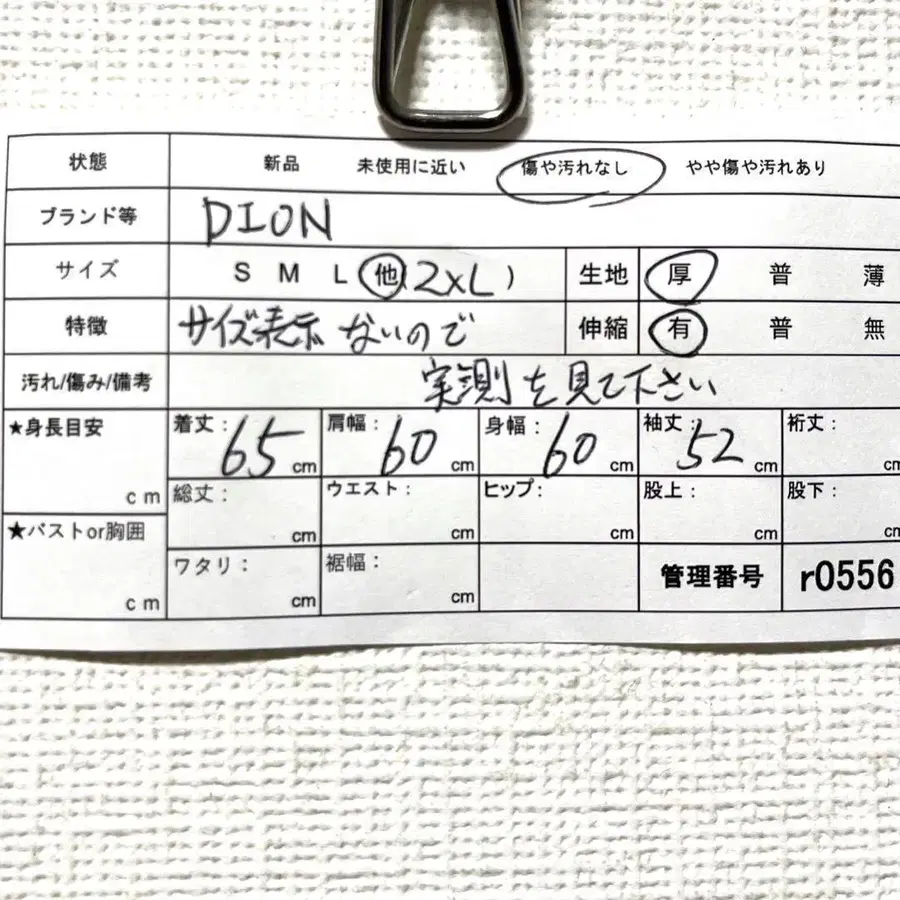 状態 新品 未使用に近い 傷や汚れなし やや傷や汚れあり
ブランド等 DION
サイズ S M L 他(2XL) 生地 厚 普 薄
特徴 サイズ表示ないので 伸縮 有 普 無
汚れ/傷み/備考 実測を見て下さい
★身長目安 cm 着丈: 65 cm 肩幅: 60 cm 身幅: 60 cm 袖丈: 52 cm 裄丈: cm
総丈: cm ウエスト: cm ヒップ: cm 股上: cm 股下: cm
★バストor胸囲 cm ワタリ: cm 裾幅: cm 管理番号 r0556